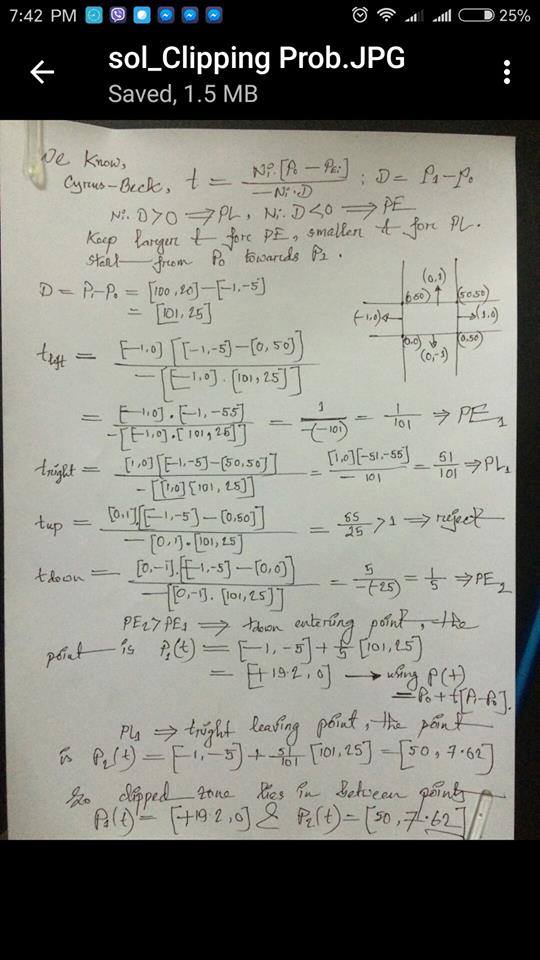 7:42 PM 25%
sol_Clipping Prob.JPG
Saved, 1.5 MB
We Know,
Cyrus-Beck, t = Ni.[P0 - PEi] / -Ni.D ; D = P1-P0
Ni.D>0 ⟹ PL, Ni.D<0 ⟹ PE
Keep larger t fore PE, smaller t fore PL.
start from P0 towards P1.
D = P1-P0 = [100,20]-[-1,-5]
= [101,25]
(0,1)
(0,50) (50,50)
(-1,0) (1,0)
(0,0) (0,50)
(0,-1)
tleft = [-1,0] [[-1,-5]-[0,50]] / -[[-1,0].[101,25]]
= [-1,0].[-1,-55] / -[[-1,0].[101,25]] = 1 / -(-101) = 1/101 ⟹ PE1
tright = [1,0][[-1,-5]-[50,50]] / -[[1,0][101,25]] = [1,0][-51,-55] / -101 = 51/101 ⟹ PL1
tup = [0,1].[[-1,-5]-[0,50]] / -[0,1].[101,25] = 55/25 >1 ⟹ reject
tdown = [0,-1].[[-1,-5]-[0,0]] / -[[0,-1].[101,25]] = 5 / -(-25) = 1/5 ⟹ PE2
PE2>PE1 ⟹ tdown entering point, the
point is P1(t) = [-1,-5]+1/5 [101,25]
= [+19.2,0] → using P(t)
= P0+t[P1-P0].
PL1 ⟹ tright leaving point, the point
is P2(t) = [-1,-5] + 51/101 [101,25] = [50,7.62]
So clipped zone lies in between points
P1(t) = [+19.2,0] & P2(t) = [50,7.62]